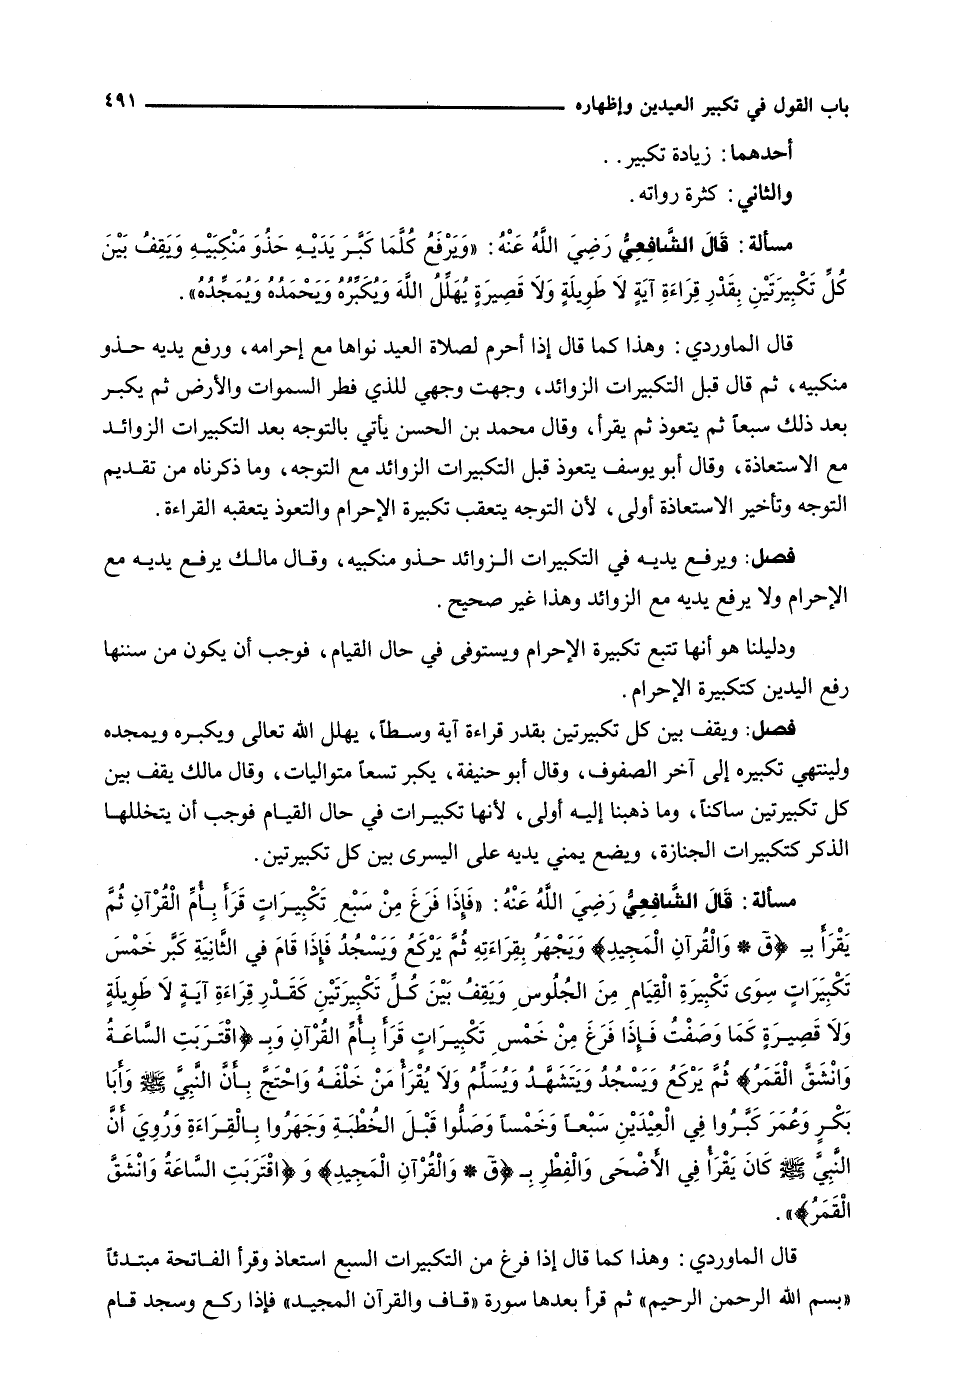 باب القول في تكبير العيدين وإظهاره ٤٩١
أحدهما: زيادة تكبير..
والثاني: كثرة رواته.
مسألة: قَالَ الشَّافِعِيُّ رَضِيَ اللَّهُ عَنْهُ: «وَيَرْفَعُ كُلَّمَا كَبَّرَ يَدَيْهِ حَذْوَ مَنْكِبَيْهِ وَيَقِفُ بَيْنَ
كُلِّ تَكْبِيرَتَيْنِ بِقَدْرِ قِرَاءَةِ آيَةٍ لَا طَوِيلَةٍ وَلَا قَصِيرَةٍ يُهَلِّلُ اللَّهَ وَيُكَبِّرُهُ وَيَحْمَدُهُ وَيُمَجِّدُهُ».
قال الماوردي: وهذا كما قال إذا أحرم لصلاة العيد نواها مع إحرامه، ورفع يديه حذو
منكبيه، ثم قال قبل التكبيرات الزوائد، وجهت وجهي للذي فطر السموات والأرض ثم يكبر
بعد ذلك سبعاً ثم يتعوذ ثم يقرأ، وقال محمد بن الحسن يأتي بالتوجه بعد التكبيرات الزوائد
مع الاستعاذة، وقال أبو يوسف يتعوذ قبل التكبيرات الزوائد مع التوجه، وما ذكرناه من تقديم
التوجه وتأخير الاستعاذة أولى، لأن التوجه يتعقب تكبيرة الإحرام والتعوذ يتعقبه القراءة.
فصل: ويرفع يديه في التكبيرات الزوائد حذو منكبيه، وقال مالك يرفع يديه مع
الإحرام ولا يرفع يديه مع الزوائد وهذا غير صحيح.
ودليلنا هو أنها تتبع تكبيرة الإحرام ويستوفى في حال القيام، فوجب أن يكون من سننها
رفع اليدين كتكبيرة الإحرام.
فصل: ويقف بين كل تكبيرتين بقدر قراءة آية وسطاً، يهلل الله تعالى ويكبره ويمجده
ولينتهي تكبيره إلى آخر الصفوف، وقال أبو حنيفة، يكبر تسعاً متواليات، وقال مالك يقف بين
كل تكبيرتين ساكناً، وما ذهبنا إليه أولى، لأنها تكبيرات في حال القيام فوجب أن يتخللها
الذكر كتكبيرات الجنازة، ويضع يمني يديه على اليسرى بين كل تكبيرتين.
مسألة: قَالَ الشَّافِعِيُّ رَضِيَ اللَّهُ عَنْهُ: «فَإِذَا فَرَغَ مِنْ سَبْعِ تَكْبِيرَاتٍ قَرَأَ بِأُمِّ الْقُرْآنِ ثُمَّ
يَقْرَأُ بـِ ﴿قَ * وَالْقُرآنِ الْمَجِيدِ﴾ وَيَجْهَرُ بِقِرَاءَتِهِ ثُمَّ يَرْكَعُ وَيَسْجُدُ فَإِذَا قَامَ فِي الثَّانِيَةِ كَبَّر خَمْسَ
تَكْبِيَرَاتٍ سِوَى تَكْبِيرَةِ الْقِيَامِ مِنَ الجُلُوسِ وَيَقِفُ بَيْنَ كُلِّ تَكْبِيرَتَيْنِ كَقَدْرِ قِرَاءَةِ آيَةٍ لَا طَوِيلَةٍ
وَلَا قَصِيرَةٍ كَمَا وَصَفْتُ فَإِذَا فَرَغَ مِنْ خَمْسِ تَكْبِيرَاتٍ قَرَأَ بِأُمِّ القُرْآنِ وَبِـ ﴿اقْتَرَبَتِ السَّاعَةُ
وَانْشَقَّ الْقَمَرُ﴾ ثُمَّ يَرْكَعُ وَيَسْجُدُ وَيَتَشَهَّدُ وَيُسَلِّمُ وَلَا يُقْرَأُ مَنْ خَلْفَهُ وَاحْتَجَّ بِأَنَّ النَّبِيَّ ﷺ وَأَبَا
بَكْرٍ وَعُمَرَ كَبَّرُوا فِي الْعِيْدَيْنِ سَبْعاً وَخَمْساً وَصَلُّوا قَبْلَ الخُطْبَةِ وَجَهَرُوا بِالْقِرَاءَةِ وَرُوِيَ أَنَّ
النَّبِيَّ ﷺ كَانَ يَقْرَأُ فِي الأَضْحَى وَالْفِطْرِ بِـ ﴿قَ * وَالْقُرْآنِ الْمَجِيدِ﴾ وَ ﴿اقْتَرَبَتِ السَّاعَةُ وَانْشَقَّ
الْقَمَرُ﴾».
قال الماوردي: وهذا كما قال إذا فرغ من التكبيرات السبع استعاذ وقرأ الفاتحة مبتدئاً
«بسم الله الرحمن الرحيم» ثم قرأ بعدها سورة «قاف والقرآن المجيد» فإذا ركع وسجد قام